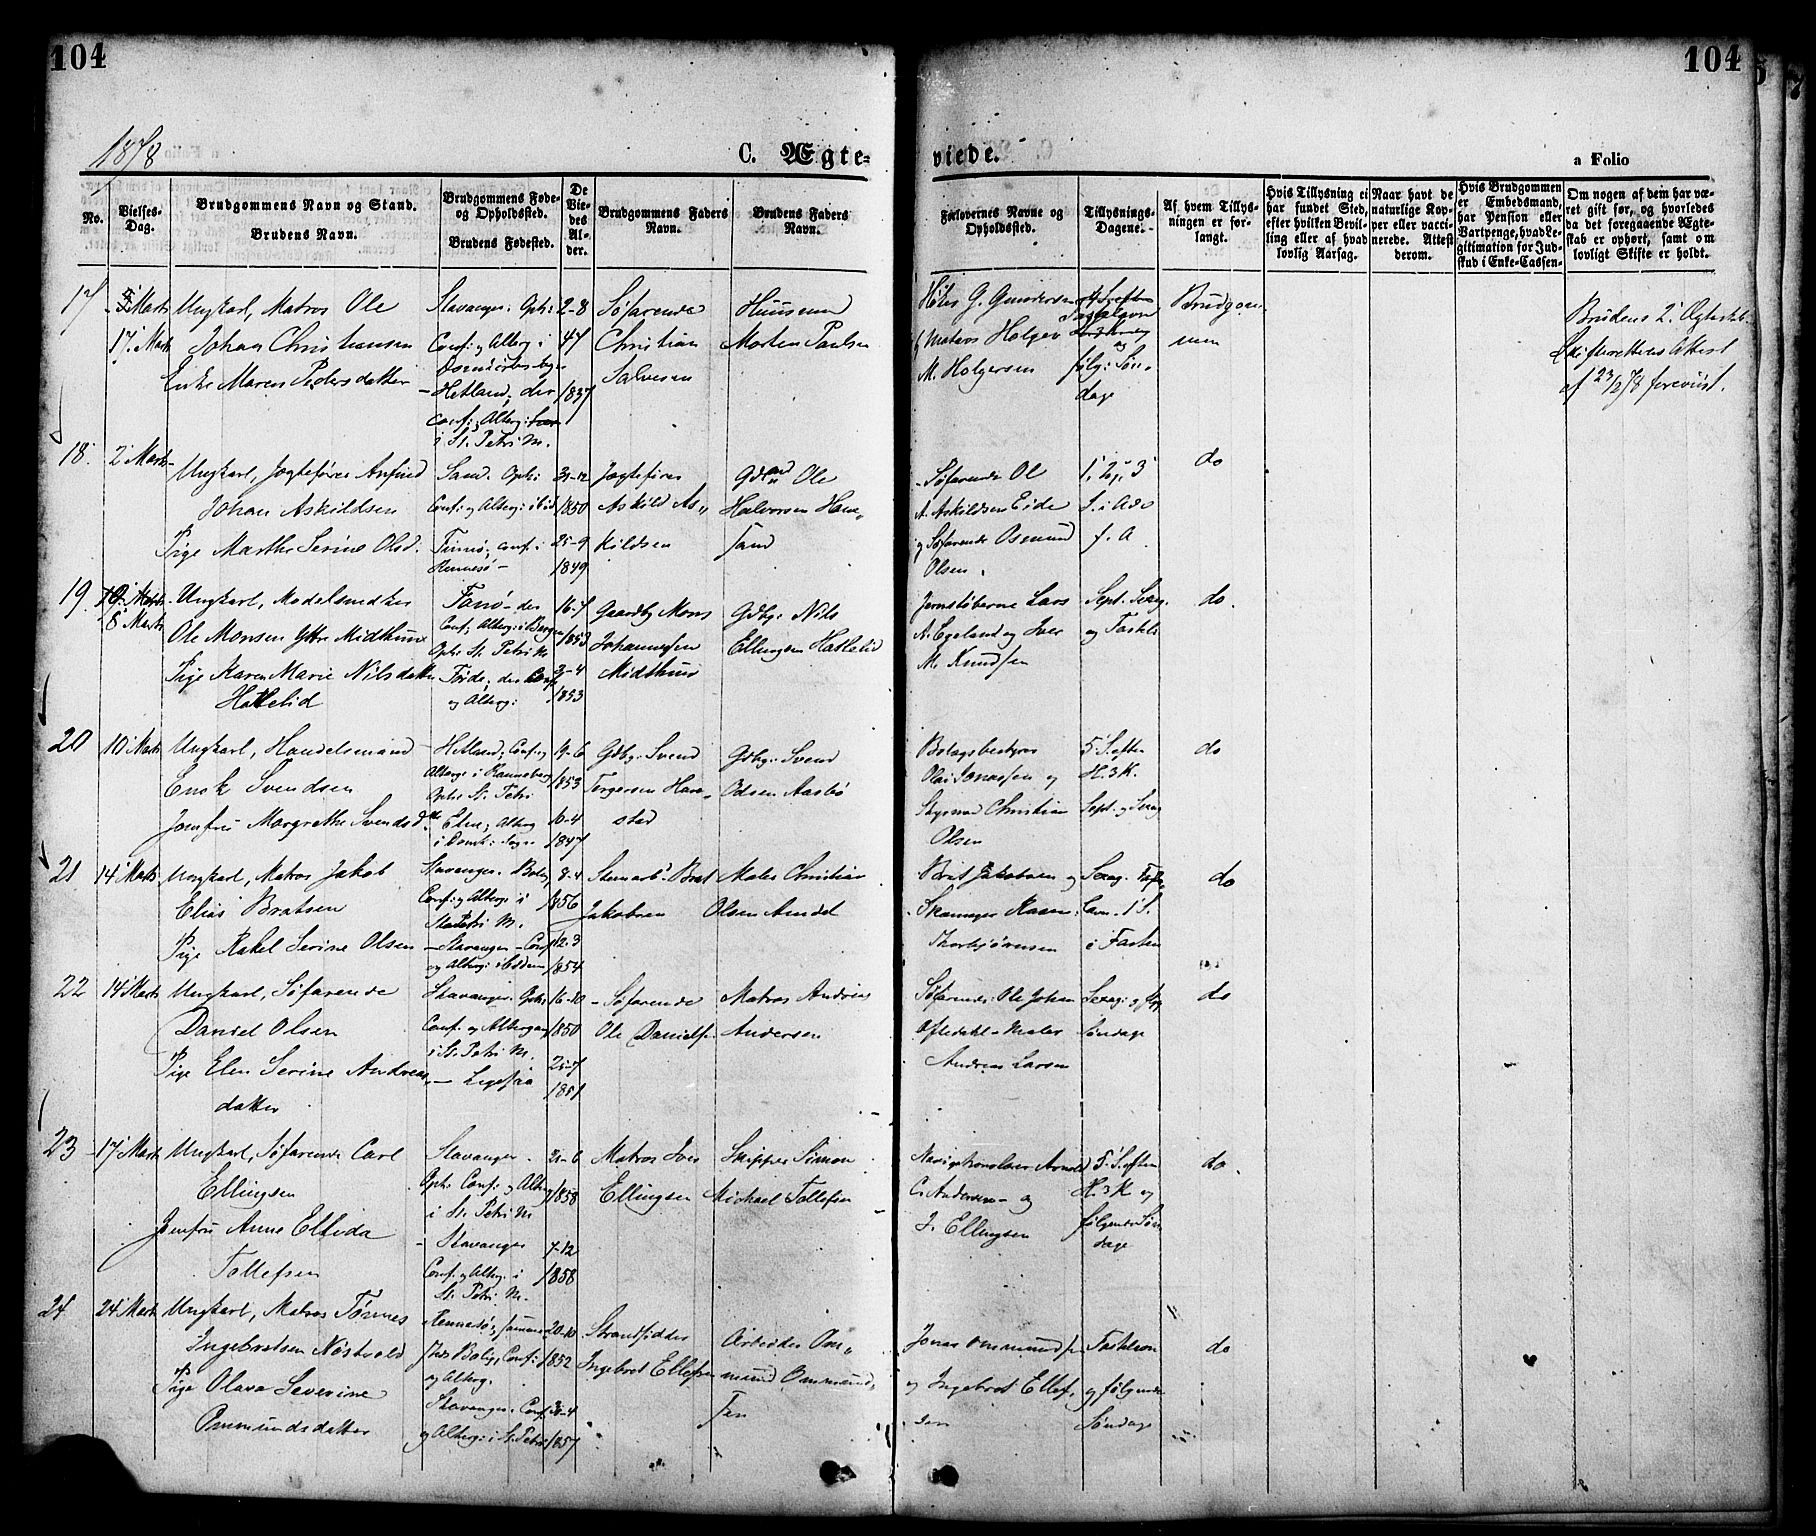 104
104
1878
C. Ægte-
viede.
a Folio
No.
Vielses-
Dag.
Brudgommens Navn og Stand.
Brudens Navn.
Brudgommens Føde-
og Opholdssted.
Brudens Fødested.
De
Vie-
des
Al-
der.
Brudgommens Faders
Navn.
Brudens Faders
Navn.
Forlovernes Navne og
Opholdssted.
Tillysnings-
Dagene.
Af hvem Tillys-
ningen er for-
langt.
Hvis Tillysning ei
har fundet Sted,
efter hvilken Bevil-
ling eller af hvad
lovlig Aarsag.
Naar havt de
naturlige Kop-
per eller vacci-
nerede. Attest
derom.
Hvis Brudgommen
er Embedsmand,
har Pension eller
Vartpenge, hvad Le-
gitimation for Ind-
skud i Enke-Cassen-
Om nogen af dem har væ-
ret gift før, og hvorledes
da det foregaaende Ægte-
skab er ophørt, samt om
lovligt Skifte er holdt.
17
Marts
17. Marts
Ungkarl, Matros Ole
Johan Christiansen
Enke Maren Pedersdatter
Stavanger. Oph:
Conf: og Alterg: i
Hetland; der
Conf: Alterg:
i St. Petri M.
2-8
47
1837
Søfarende
Christian
Salvesen
Huusmm
Morten Paulsen
G. Gundersen
Matros Holger
M. Holgersen
følg: Søn-
dage
Brudgom
men
Brudens 2. Ægteskab.
Skifterettens Attest
af 23/2 78 foreviist.
18.
2 Marts
Ungkarl, Jagtefører Anfind
Johan Askildsen
Pige Marthe Serine Olsd.
Sand. Oph:
Conf: og Alterg:
conf: i
Rennesø -
31-12
1850
25-9
1849
Jagtefører
Askild As-
kildsen
Gdmd Ole
Halvorsen Hau-
sand
Søfarende Ol
A. Askildsen Eide
og Søfarende Osmund
Olsen.
1, 2, 3
S. i Adv
f. A
do
19.
8 Marts
Ungkarl, Modelsnedker
Ole Monsen Ytre Midthun
Pige Karen Marie Nilsdatter
Hatlelid
Fanø - der
Conf; Alterg: i Bergen
Oph: St. Petri M
Førde; der Conf
og Alterg:
16-7
1853
3-4
1853
Gaardbr Mons
Johannessen
Midthun
Gdbr: Nils
Ellingsen Hatlelid
Jernstøberne Lars
A. Egeland og Iver
M. Knudsen
Sept. Sexag.
og Fastel:
do.
20
10 Marts
Ungkarl, Handelsmand
Enok Svendsen
Jomfru Margrethe Svendsdtt
Hetland; Conf: og
Alterg: i Ranneberg
Oph: St. Petri
Etne; Alterg
i Domk: Sogn
19-6
1853
10-4
1847
Gdbr: Svend
Torgersen Hau-
stad
Gdbr: Svend
Odsen Aasbø
Bolagsbestyrer
Olai Jonassen og
Styrmd Christian
Olsen
5. S. efter
H. 3 K.
Sept. og Sexag
do
21
14 Marts
Ungkarl, Matros Jakob
Elias Bratsen
Pige Rakel Serine Olsen
Stavanger. Bolig
Conf: og Alterg: i
St. Petri M.
Stavanger - Conf
og Alterg:
8-4
1856
12-3
1854
Steenarb: Brat
Jakobsen
Maler Christian
Olsen Arndal
Brat Jakobsen og
Skomager Rasm:
Thorbjørnsen
Sexag. Faste-
lavn. 1 S.
i Fasten
do
22
14 Marts
Ungkarl, Søfarende
Daniel Olsen
Pige Elen Serine Andreas-
datter
Stavanger. Oph:
Conf: og Alterg
i St. Petri M.
- Ligesaa
16-10
1850
25-7
1851
Søfarende
Ole Danielsen
Matros Andreas
Andersen
Søfarende: Ole Johan
Oftedahl - Maler
Andreas Larsen
Sexag: og flg
Søndage
do
23
17 Marts
Ungkarl, Søfarende Carl
Ellingsen
Jomfru Anne Elfida
Tollefsen
Stavanger.
Oph: Conf: og Alterg
i St. Petri M
- Stavanger
Conf: og Alterg: i
St. Petri M.
21-6
1858
7-12
1858
Matros Iver
Ellingsen
Skipper Simon
Michael Tollefsen
Navigationslærer Arnold
C. Andersen - og
I. Ellingsen
5. S. efter
H. 3 K og
følgende Søn
dage
do.
24
24 Marts
Ungkarl, Matros Tønnes
Ingebretsen Nøstvold
Pige Olava Severine
Ommundsdatter
Rennesø;
Bolig, Conf:
og Alterg.
Stavanger. Conf.
og Alterg: i St. Petri
20-10
1852
3-4
1857
Strandsidder
Ingebret Ellefsen
Arbeider Om-
mund Ommund-
sen
Jonas Ommundsen
og Ingebret Ellef-
sen
Fastelavn
og følgende
Søndage
do